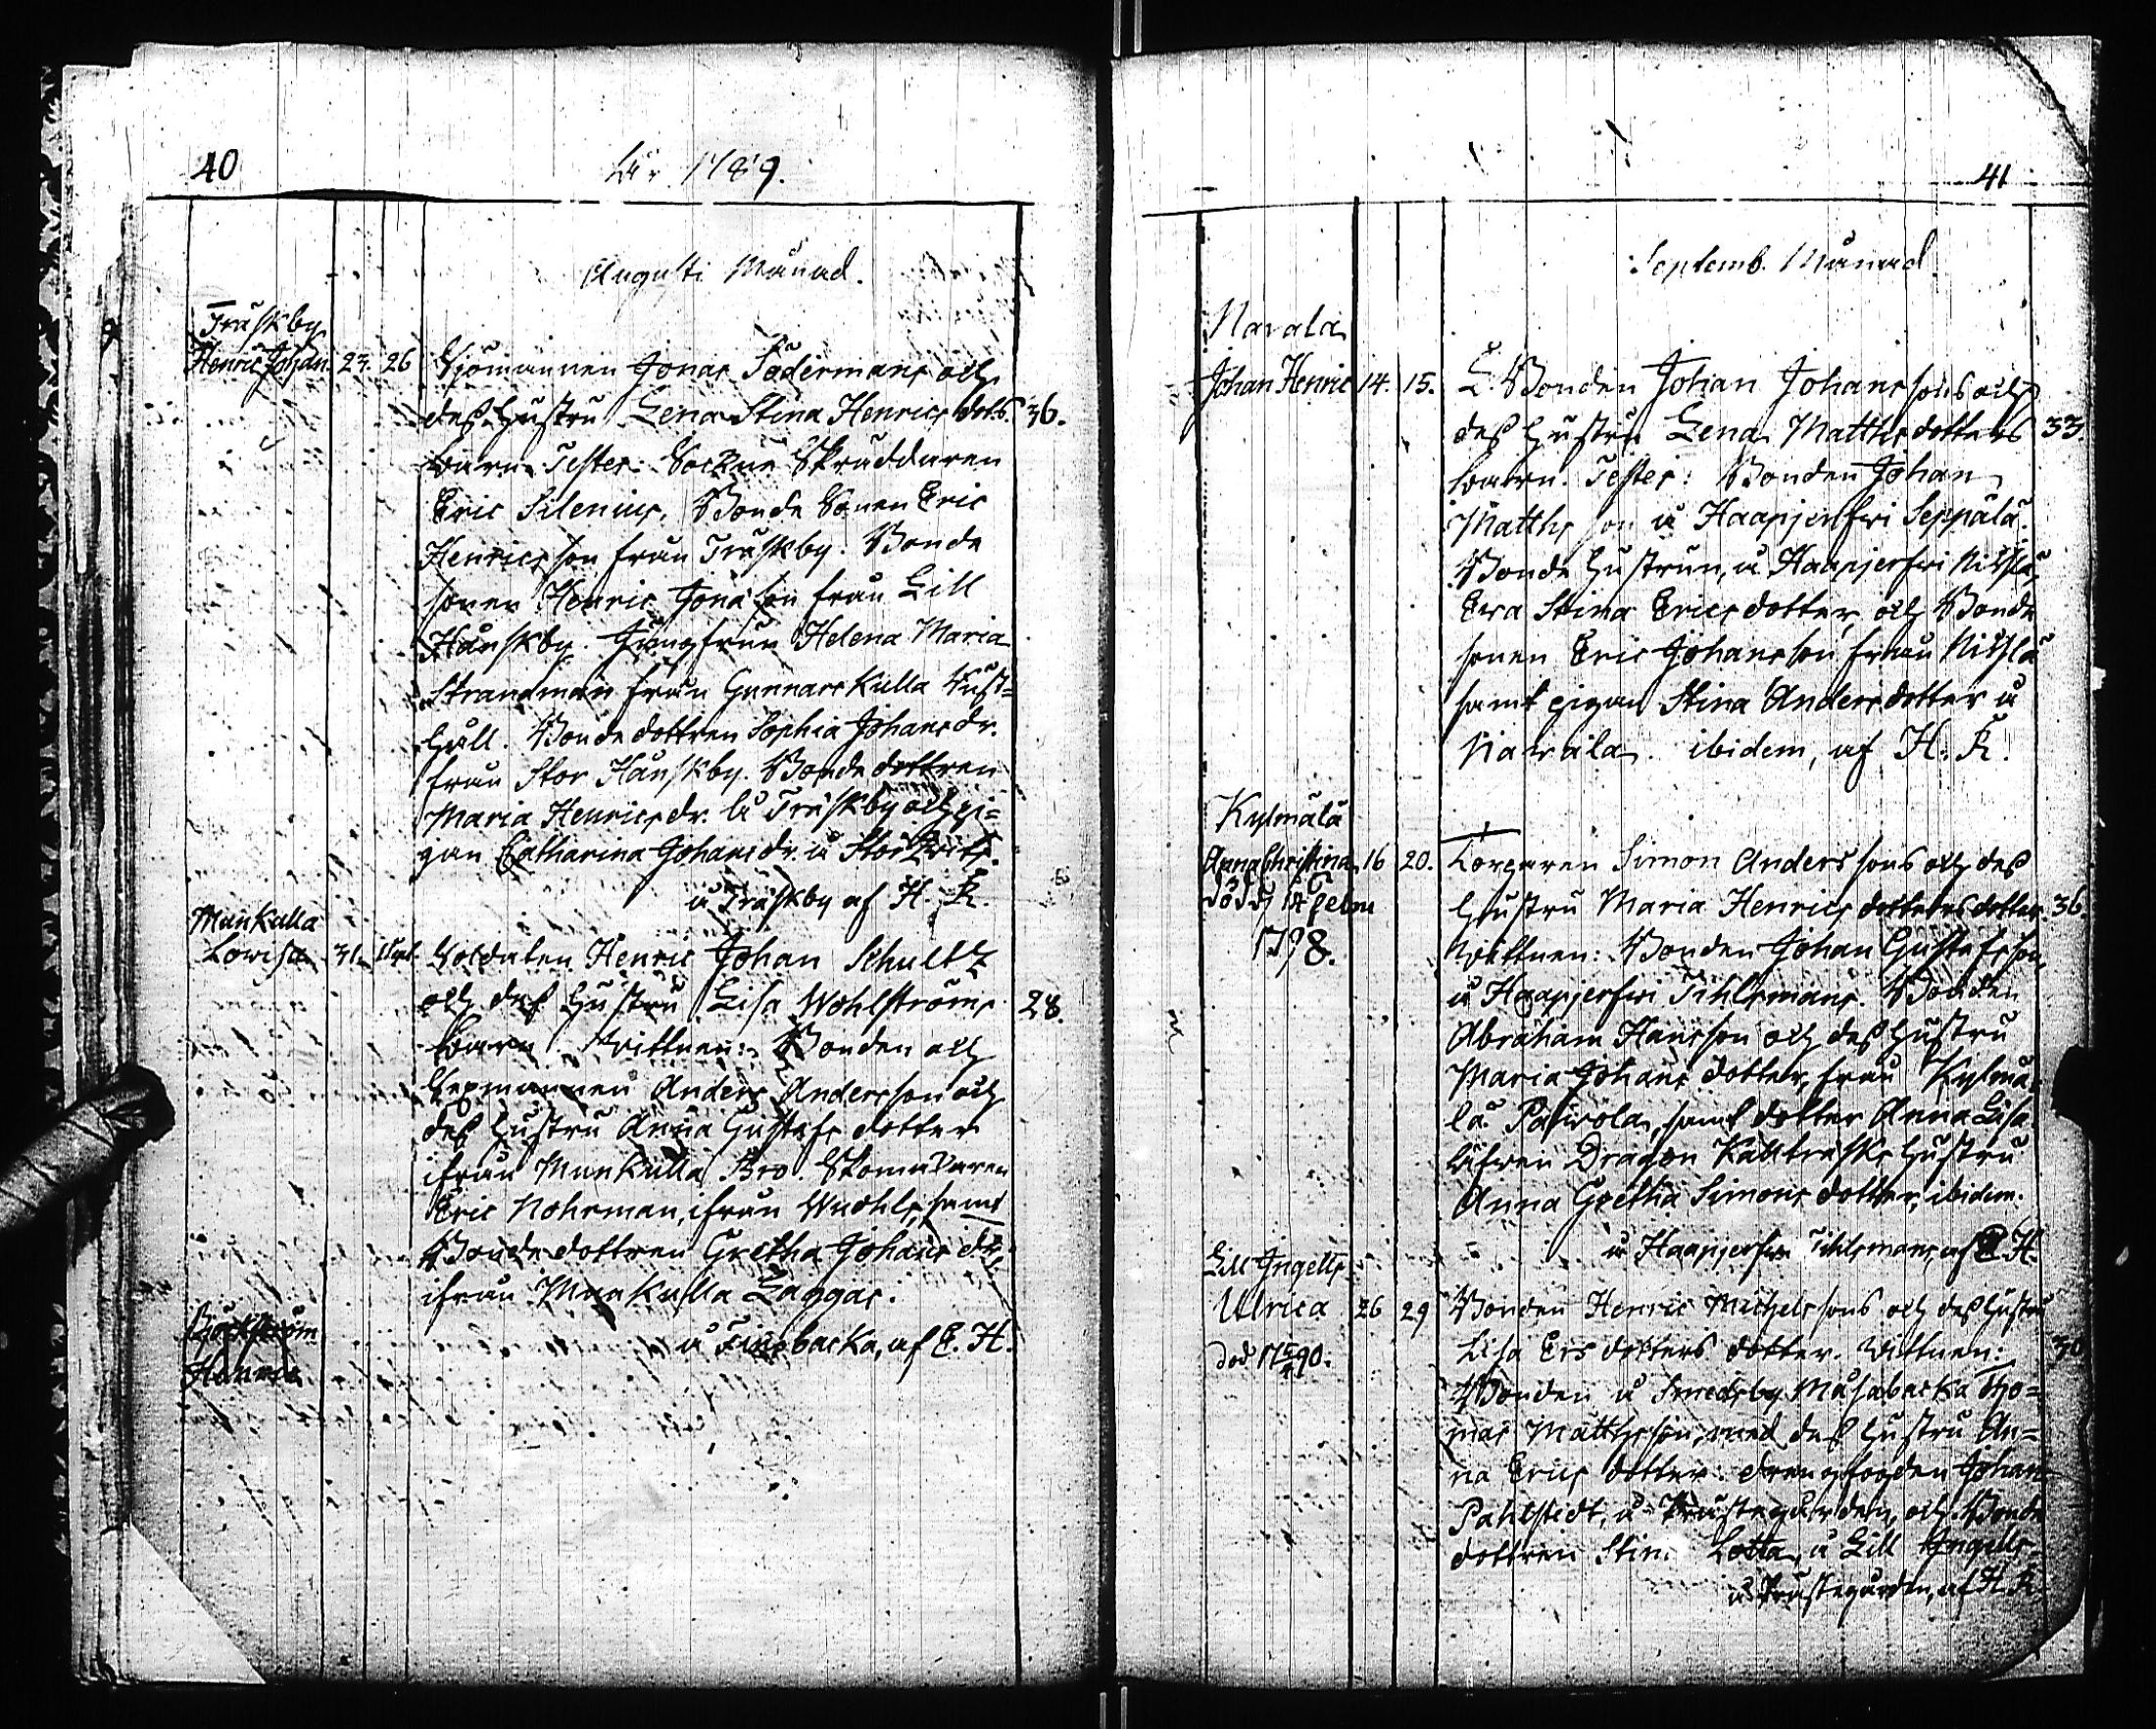 40
År 1789.
Augusti Månad.
Träskby
Henric Johan 23. 26 Sjömannen Jonas Södermans och
dess Hustru Lena Stina Henrics dots. 36.
barn. Testes: Sockne Skräddaren
Eric Silenius, Bonde Sonen Eric
Henricsson från Träskby. Bonde
sonen Henric Jonasson från Lill
Hånskby. Jungfrun Helena Maria
Strandman från Gunnarskulla Rust=
håll. Bonde dottren Sophia Johansdr.
från Stor Hånskby. Bonde dottren
Maria Henricsdr. å Träskby och pi=
gan Catharina Johansdr. å Stor
å Träskby af H. R.
Munkulla
Lovisa 31. Soldaten Henric Johan Schultz
och dess Hustru Lisa Wohlströms 28.
barn. Vittnen: Bonden och
Sexmannen Anders Andersson och
dess Hustru Anna Gustafs dotter
ifrån Munkulla Bro. Skomakaren
Eric Nohrman, ifrån samt
Bonde dottren Gretha Johans dr.
ifrån Munkulla Laggas.
å Finsbacka, af E. H.
Björkström
41
Septemb. Månad
Navala
Johan Henric 14. 15. Bonden Johan Johanssons och
dess Hustru Lena Matths dotters 33.
barn. Testes: Bonden Johan
Matthsson å Haapjerfwi Seppälä.
Bonde Hustrun, å Haapjerfwi
Eva Stina Erics dotter, och Bonde
sonen Eric Johansson från
samt pigan Stina Anders dotter å
Navala. ibidem, af H. R.
Kylmälä
Anna Christina 16 20. Torparen Simon Anderssons och dess
död 1798.
Hustru Maria Henrics dotters dotter 36
Vittnen: Bonden Johan Gustafsson,
å Haapjerfwi Tihlsmans. Bonden
Abraham Hansson och dess Hustru
Maria Johans dotter, från Kylmä=
lä Pawola, samt dotter Anna Lisa
äfven Dragon Kalträsks Hustru
Anna Gretha Simons dotter, ibidem.
å Haapjerfwi Tihlsmans, af E. H.
Lill Ingells
Ulrica 26 29 Bonden Henric Michelssons och dess Hustru
död 1790.
Lisa Ers dotters dotter. Vittnen: 30
Bonden å Smedsby Måsabacka Tho=
mas Matthsson, med dess Hustru An=
na Erics dotter: drengfogden Johan
Pahlstedt, å Prästegården, och Bonde
dottren Stina Lotta, å Lill Ingells
å Prästegården, af H. R.